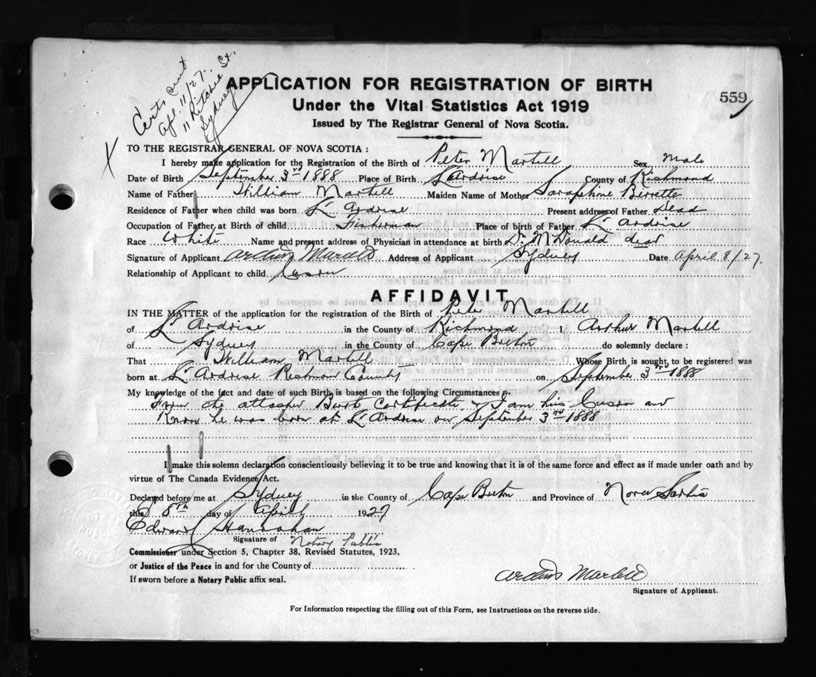 Certs sent
Apl. 11/27.
11 Ritchie St.
Sydney
APPLICATION FOR REGISTRATION OF BIRTH
559
Under the Vital Statistics Act 1919
Issued by The Registrar General of Nova Scotia.
X
TO THE REGISTRAR-GENERAL OF NOVA SCOTIA :
I hereby make application for the Registration of the Birth of Peter Martell Sex Male
Date of Birth September 3rd 1888 Place of Birth L'Ardoise County of Richmond
Name of Father William Martell Maiden Name of Mother Saraphine
Residence of Father when child was born L'Ardoise Present address of Father Dead
Occupation of Father at Birth of child Fisherman Place of birth of Father L'Ardoise
Race White Name and present address of Physician in attendance at birth Dr McDonald dead
Signature of Applicant Arthur Martell Address of Applicant Sydney Date April 8/27.
Relationship of Applicant to child Cuson
AFFIDAVIT
IN THE MATTER of the application for the registration of the Birth of Peter Martell
of L'Ardoise in the County of Richmond I Arthur Martell
of Sydney in the County of Cape Breton do solemnly declare :
That William Martell Whose Birth is sought to be registered was
born at L'Ardoise Richmond County on September 3rd 1888
My knowledge of the fact and date of such Birth is based on the following Circumstances :-
From the attached Birth Certificate & I am his Cuson and
Know he was born at L'Ardoise on September 3rd 1888
I make this solemn declaration conscientiously believing it to be true and knowing that it is of the same force and effect as if made under oath and by
virtue of The Canada Evidence Act.
Declared before me at Sydney in the County of Cape Breton and Province of Nova Scotia
this 8th day of April 1927
Edward Hanrahan
Signature of Notary Public
Commissioner under Section 5, Chapter 38, Revised Statutes, 1923.
or Justice of the Peace in and for the County of
If sworn before a Notary Public affix seal.
Arthur Martell
Signature of Applicant.
For Information respecting the filling out of this Form, see Instructions on the reverse side.